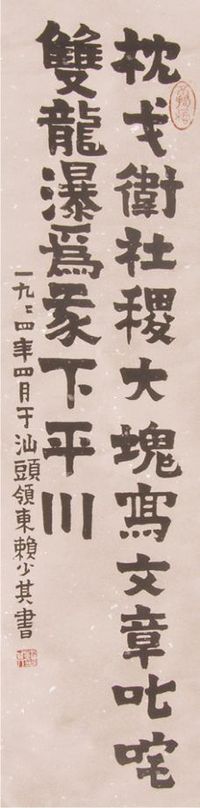 枕戈衛社稷大塊寫文章叱咤
雙龍瀑爲我下平川
一九八四年四月于汕頭領東賴少其書